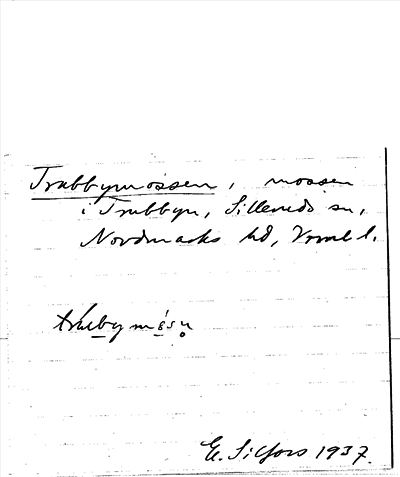 Trubbymossen, mossen
i Trubbyn, Silleruds sn,
Nordmarks hd, Vrml l.
E. Silfors 1937.